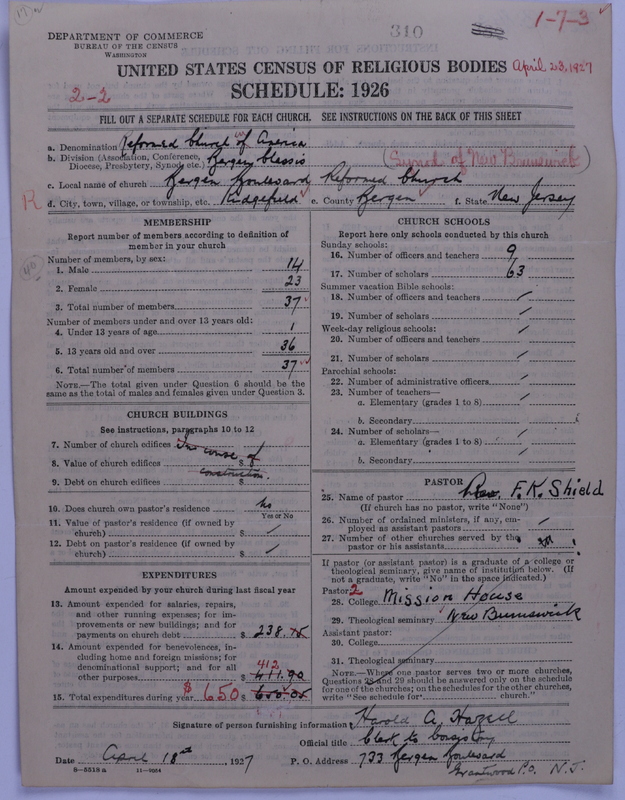 310
1-7-3
DEPARTMENT OF COMMERCE
BUREAU OF THE CENSUS
WASHINGTON
UNITED STATES CENSUS OF RELIGIOUS BODIES
April 23, 1927
2-2
SCHEDULE: 1926
FILL OUT A SEPARATE SCHEDULE FOR EACH CHURCH. SEE INSTRUCTIONS ON THE BACK OF THIS SHEET
a. Denomination Reformed Church in America
b. Division (Association, Conference, Diocese, Presbytery, Synod, etc.) Bergen Classis (Synod of New Brunswick)
c. Local name of church Bergen Boulevard Reformed Church
R d. City, town, village, or township, etc. Ridgefield e. County Bergen f. State New Jersey
MEMBERSHIP
Report number of members according to definition of member in your church
Number of members, by sex:
1. Male 14
2. Female 23
3. Total number of members 37
Number of members under and over 13 years old:
4. Under 13 years of age 1
5. 13 years old and over 36
6. Total number of members 37
NOTE.—The total given under Question 6 should be the same as the total of males and females given under Question 3.
CHURCH BUILDINGS
See instructions, paragraphs 10 to 12
7. Number of church edifices In course of
8. Value of church edifices $
construction
9. Debt on church edifices $
10. Does church own pastor's residence No
Yes or No
11. Value of pastor's residence (if owned by church) $ /
12. Debt on pastor's residence (if owned by church) $ /
EXPENDITURES
Amount expended by your church during last fiscal year
13. Amount expended for salaries, repairs, and other running expenses; for improvements or new buildings; and for payments on church debt $ 238.15
14. Amount expended for benevolences, including home and foreign missions; for denominational support; and for all other purposes $ 411.90
412
15. Total expenditures during year $650 $ 650.05
CHURCH SCHOOLS
Report here only schools conducted by this church
Sunday schools:
16. Number of officers and teachers 9
17. Number of scholars 63
Summer vacation Bible schools:
18. Number of officers and teachers /
19. Number of scholars /
Week-day religious schools:
20. Number of officers and teachers /
21. Number of scholars /
Parochial schools:
22. Number of administrative officers /
23. Number of teachers—
a. Elementary (grades 1 to 8) /
b. Secondary
24. Number of scholars—
a. Elementary (grades 1 to 8) /
b. Secondary /
PASTOR
25. Name of pastor Rev. F. K. Shield
(If church has no pastor, write "None")
26. Number of ordained ministers, if any, employed as assistant pastors /
27. Number of other churches served by the pastor or his assistants
If pastor (or assistant pastor) is a graduate of a college or theological seminary, give name of institution below. (If not a graduate, write "No" in the space indicated.)
Pastor: 2
28. College Mission House
29. Theological seminary New Brunswick
Assistant pastor:
30. College
31. Theological seminary
NOTE.—Where one pastor serves two or more churches, Questions 28 and 29 should be answered only on the schedule for one of the churches; on the schedules for the other churches, write "See schedule for church."
Signature of person furnishing information Harold A. Hazell
Official title Clerk to Consistory
Date April 18th 1927 P. O. Address 733 Bergen Boulevard
Grantwood P.O. N. J.
8-5518 a 11-9064